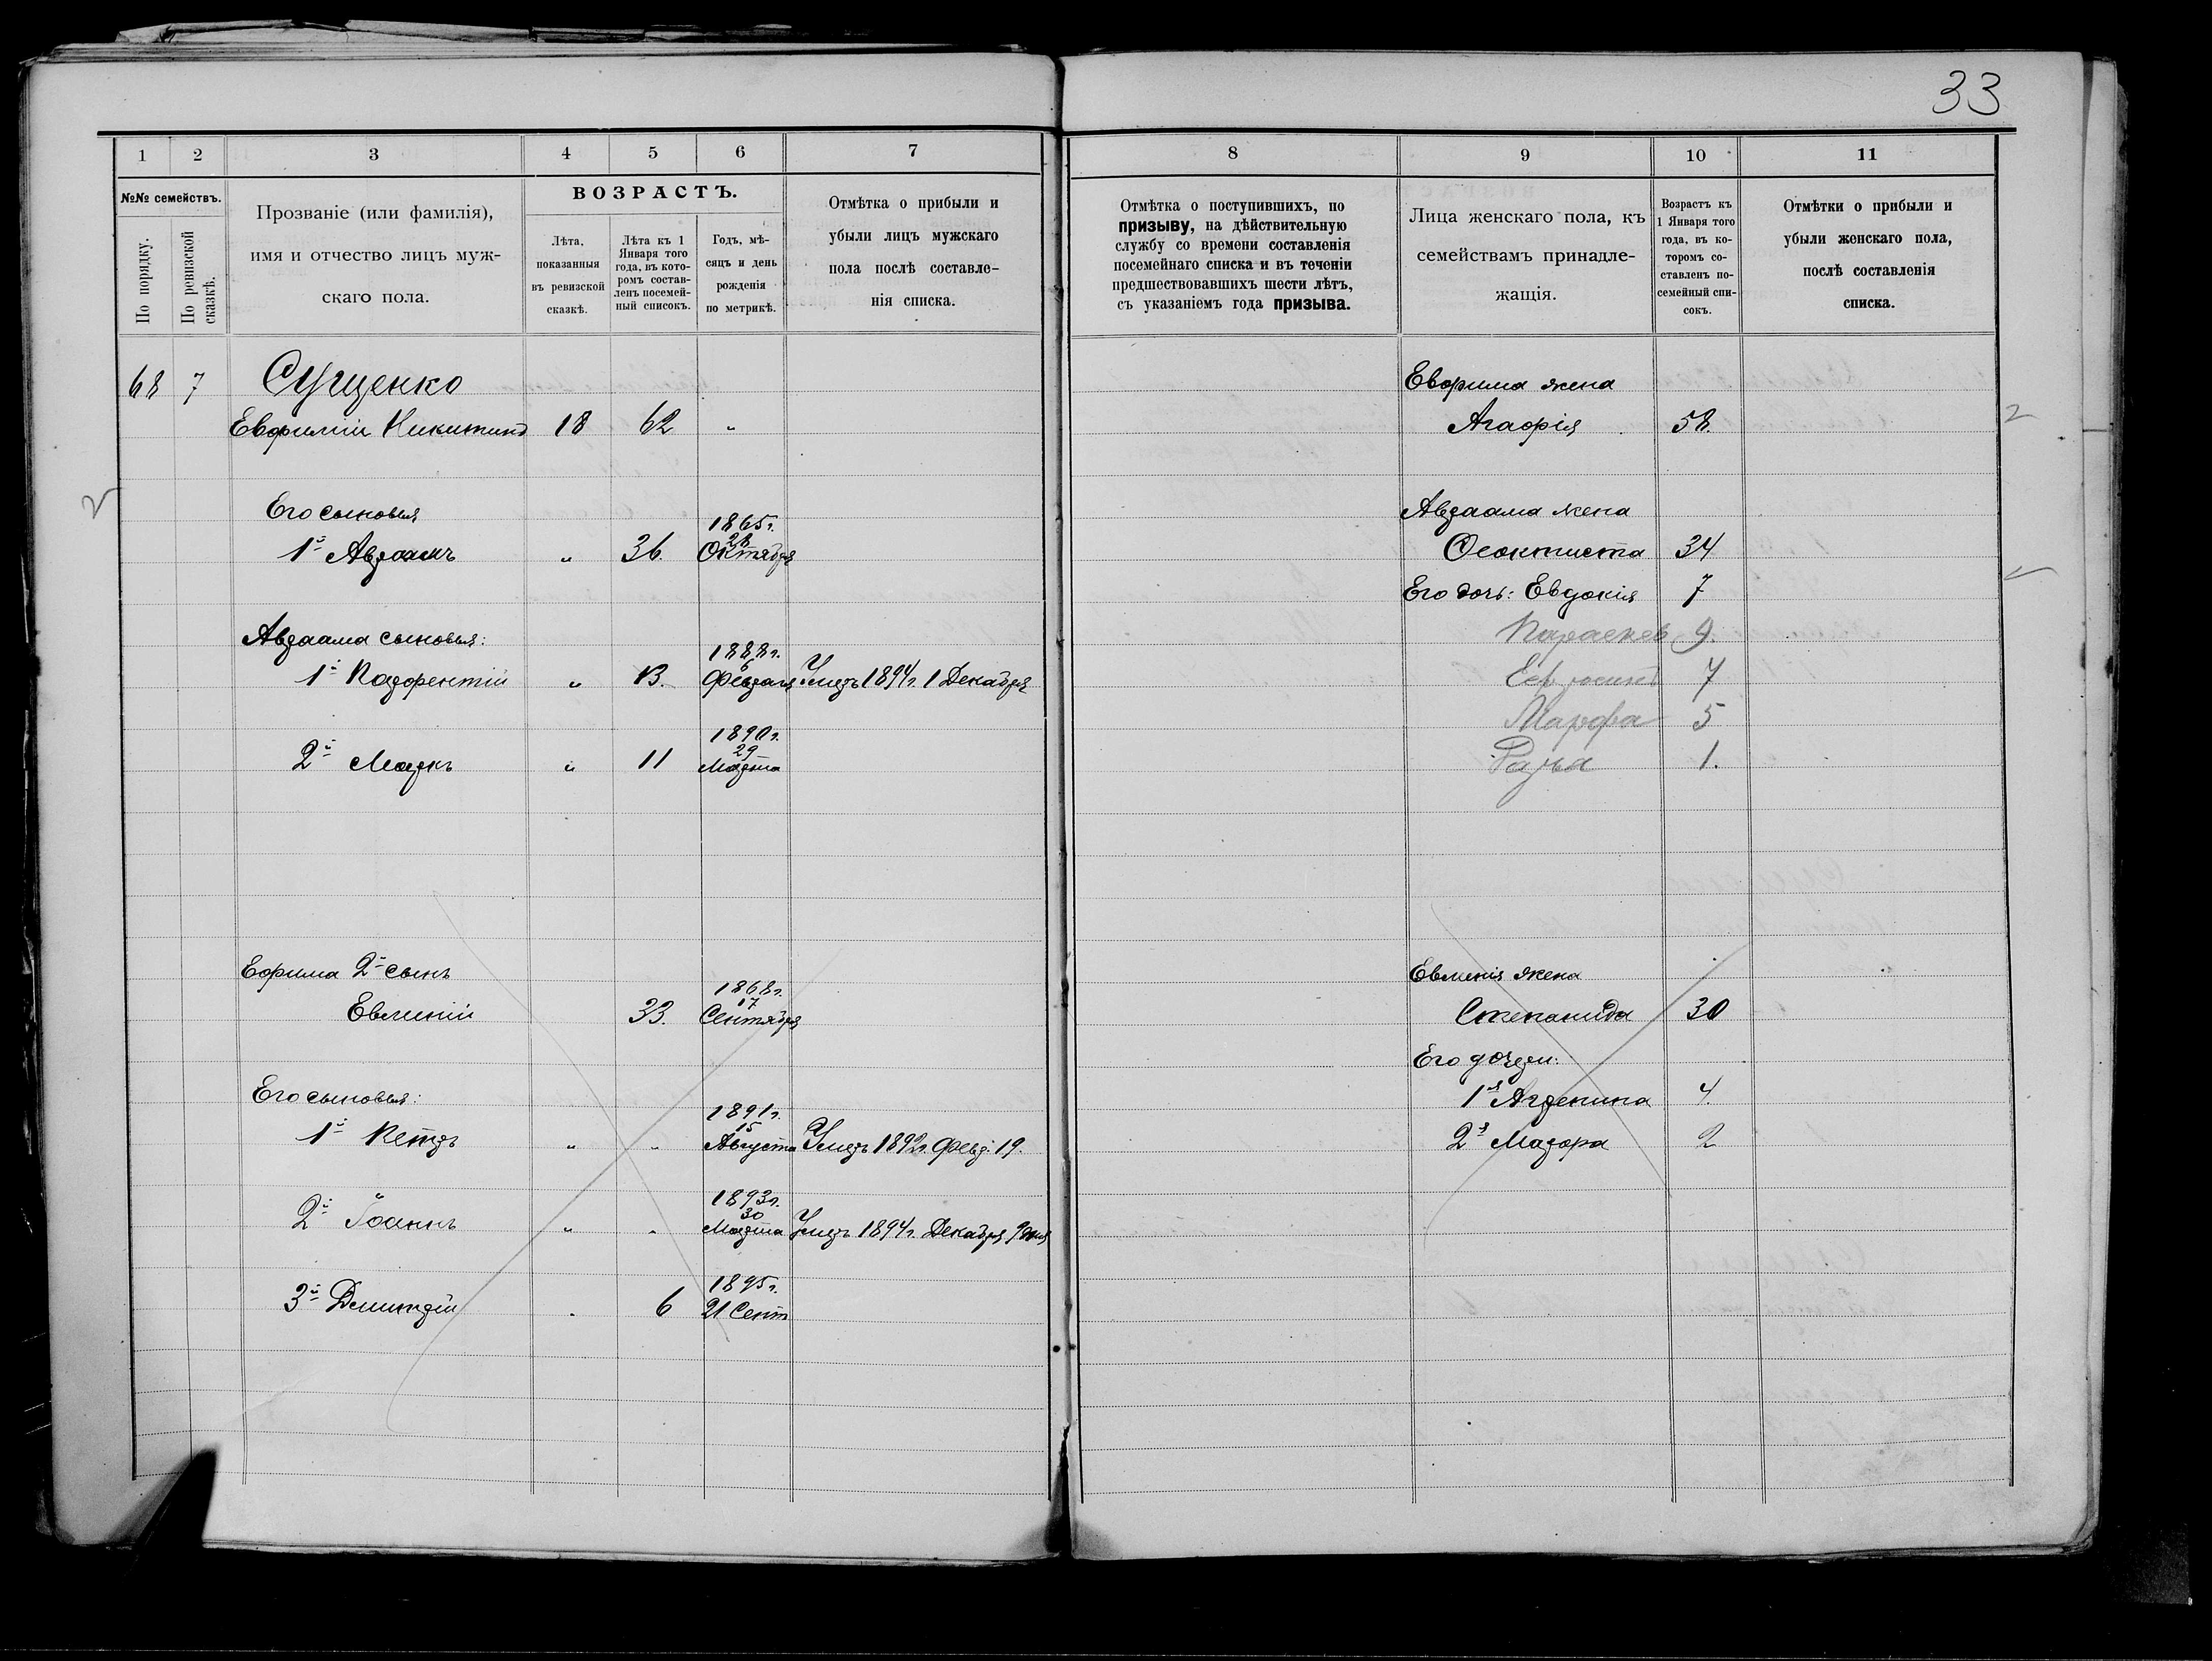 33
1 2 3 4 5 6 7
№№ семействъ.
По порядку.
По ревизской сказкѣ.
Прозваніе (или фамилія),
имя и отчество лицъ муж-
скаго пола.
ВОЗРАСТЪ.
Лѣта,
показанныя
въ ревизской
сказкѣ.
Лѣта къ 1
Января того
года, въ кото-
ромъ состав-
ленъ посемей-
ный списокъ.
Годъ, мѣ-
сяцъ и день
рожденія
по метрикѣ.
Отмѣтка о прибыли и
убыли лицъ мужскаго
пола послѣ составле-
нія списка.
68 7 Сущенко
Евфимій Никитинъ 18 62 "
Его сыновья
1865г.
28
1й Авраамъ " 36. Октября
Авраама сыновья:
1888г.
6
1й " 13. Февраля Умеръ 1894г. 1 Декабря
1890г.
29
2й Маркъ " 11 Марта
Ефима 2й сынъ
1868г.
17
Евменій 33. Сентября
Его сыновья:
1891г.
15
1й Петръ " " Августа Умеръ 1892г. Февр. 19.
1893г.
30
2й Іоаннъ " " Марта Умеръ 1894г. Декабря 9 дня
1895г.
3й Димитрій " 6 21 Сент
8 9 10 11
Отмѣтка о поступившихъ, по
призыву, на дѣйствительную
службу со времени составленія
посемейнаго списка и въ теченіи
предшествовавшихъ шести лѣтъ,
съ указаніемъ года призыва.
Лица женскаго пола, къ
семействамъ принадле-
жащія.
Возрастъ къ
1 Января того
года, въ ко-
торомъ со-
ставленъ по-
семейный спи-
сокъ.
Отмѣтки о прибыли и
убыли женскаго пола,
послѣ составленія
списка.
Евфима жена
Агафія 58.
Авраама жена
Феоктиста 34
Его дочь: Евдокія 7
Параскев 9.
7
Марфа 5
1.
Евменія жена
Степанида 30
Его дочери:
1я Агрепина 4.
2я Мавра 2